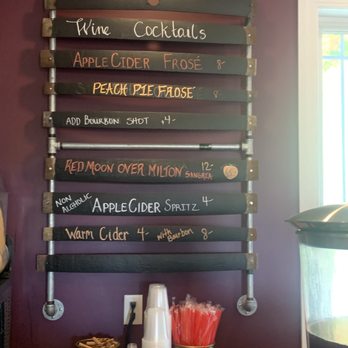 Wine Cocktails
Apple Cider Frosé 8-
Peach Pie Frosé 8
Add Bourbon Shot $4-
Red Moon Over Milton 12-
Sangria
Non Alcholic Apple Cider Spritz 4-
Warm Cider 4- with Bourbon 8-